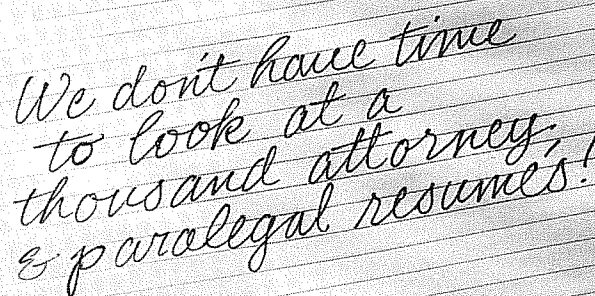 We don't have time
to look at a
thousand attorney
& paralegal resumés!